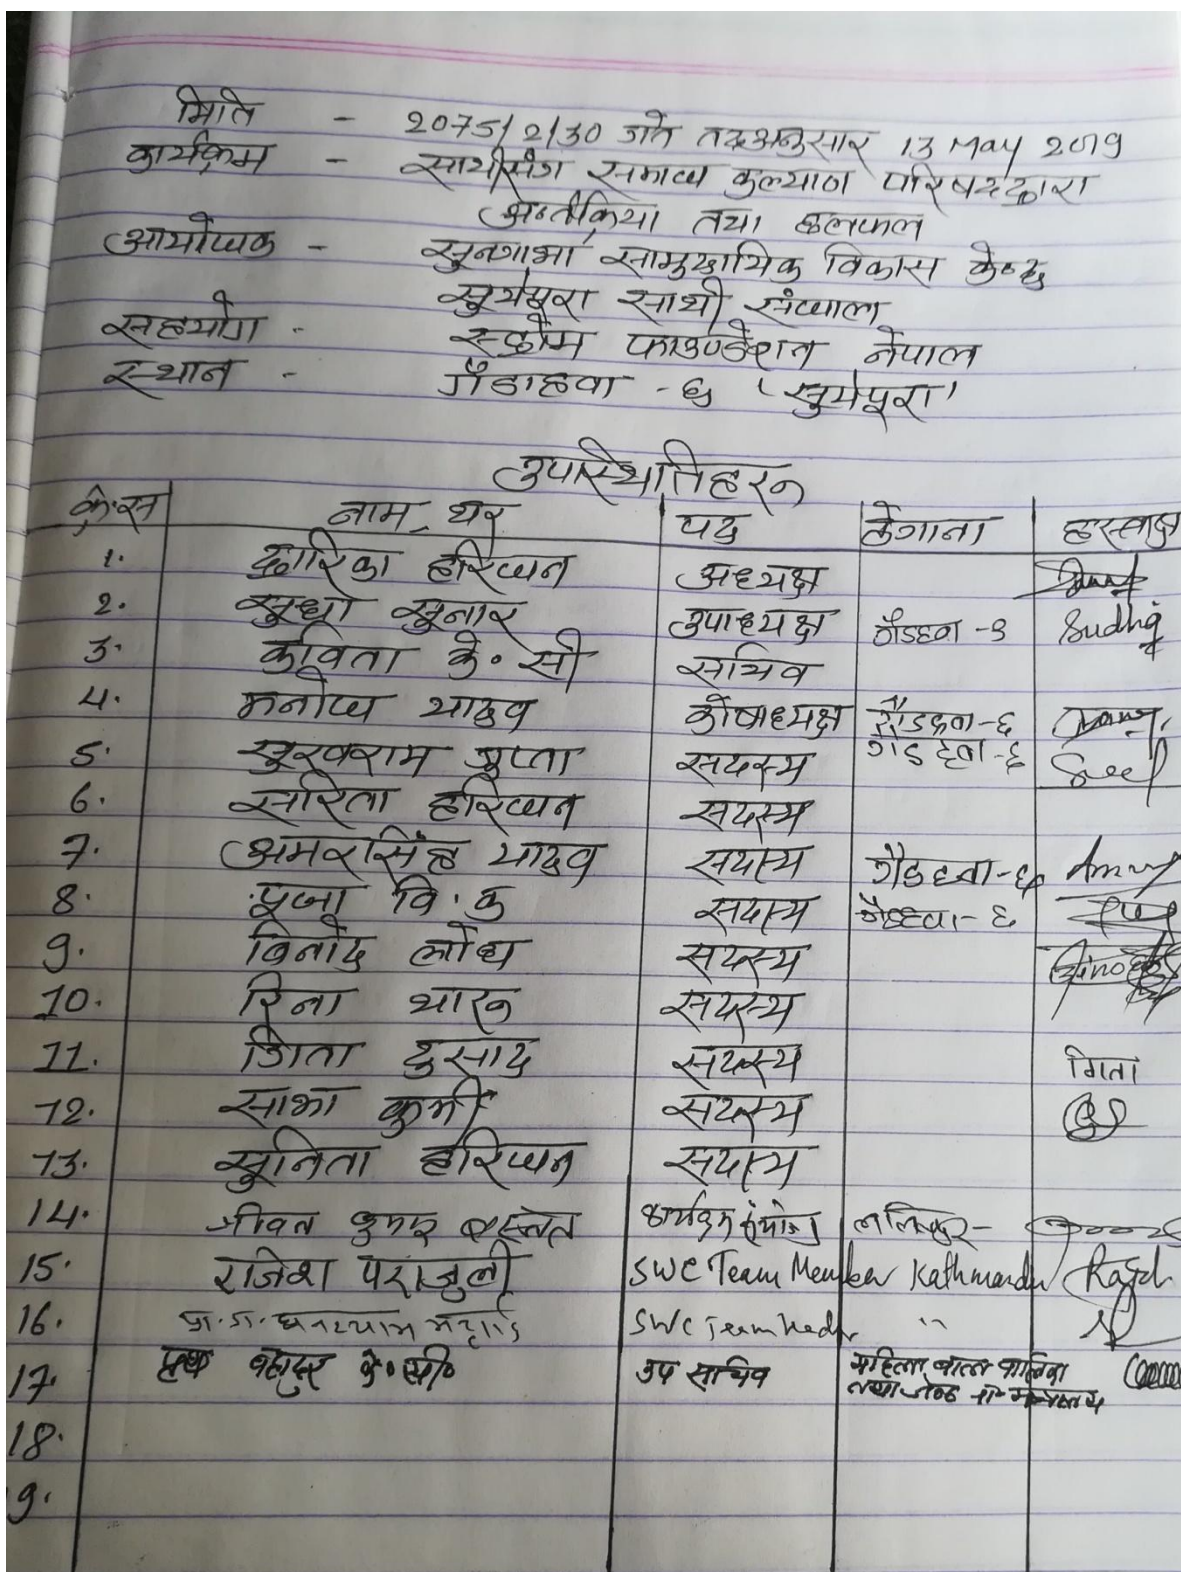 मिति - 2075/2/30 गते तदअनुसार 13 May 2019
कार्यक्रम - साथीसंग समाज कल्याण परिषदद्वारा
अन्तक्रिया तथा छलफल
आयोजक - सुनगाभा सामुदायिक विकास केन्द्र
सुर्यपुरा साथी संजाल
सहयोग - स्ट्रोम फाउण्डेशन नेपाल
स्थान - गैडाहवा - ६ 'सुर्यपुरा'
उपास्थितिहरु
क्र.स नाम, थर पद ठेगाना हस्ताक्ष
1. द्वारिका हरिजन अध्यक्ष
2. सुधा सुनार उपाध्यक्ष गैडहवा - ९ Sudha
3. कविता के.सी सचिव
4. मनोज यादव कोषाध्यक्ष गैडहवा - ६
5. सुखराम गुप्ता सदस्य गैडहवा - ६
6. सरिता हरिजन सदस्य
7. अमरसिंह यादव सदस्य गैडहवा - ६
8. पूजा वि.क सदस्य गैडहवा - ६
9. बिनोद लोध सदस्य
10. रिना थारु सदस्य
11. गिता दुसाद सदस्य गिता
12. साभा कुर्मी सदस्य
13. सुनिता हरिजन सदस्य
14. जीवन कुमार बस्नेत कार्यक्रम ललितपुर -
15. राजेश पराजुली SWC Team Member Kathmandu
16. प्रा.डा. घनश्याम भट्टराई SWC Team Leader "
17. बहादुर के.सी. उप सचिव महिला बाल बालिका
तथा जेष्ठ ना. मन्त्रालय
18.
9.